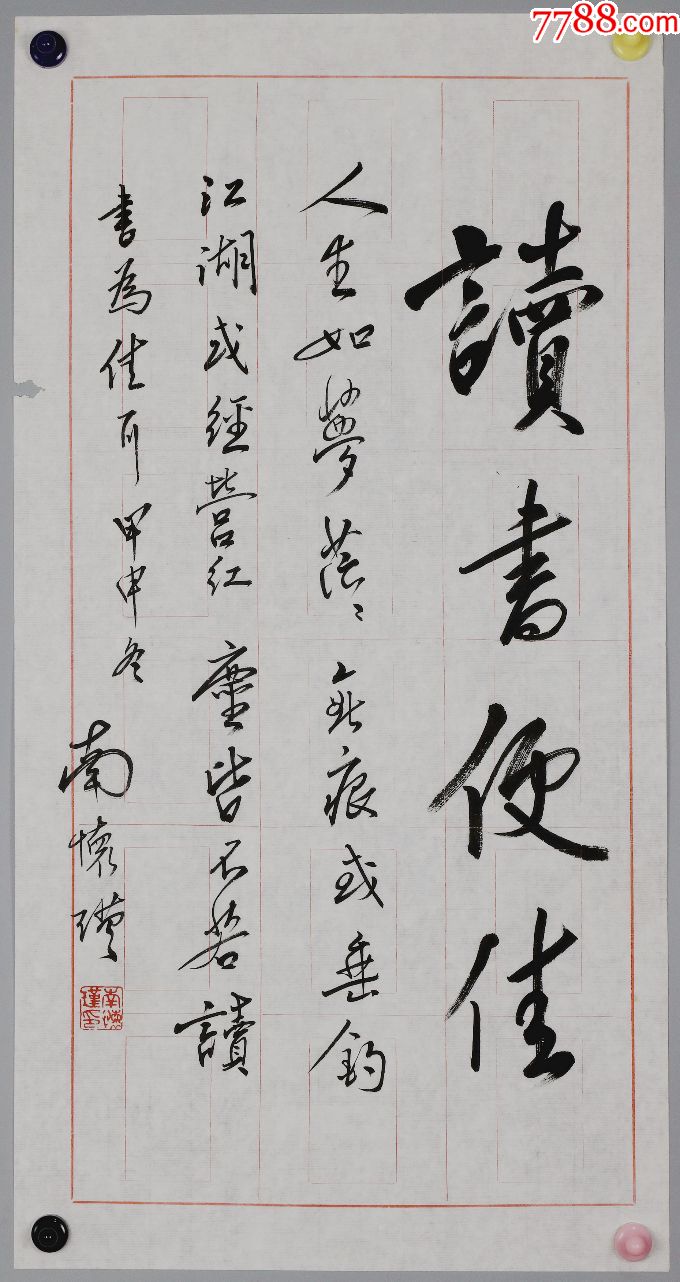 7788.com
讀書便佳
人生如夢荏〻無痕或垂釣
江湖或經營紅塵皆不若讀
書為佳耳甲申冬
南懷瑾
南懷瑾印